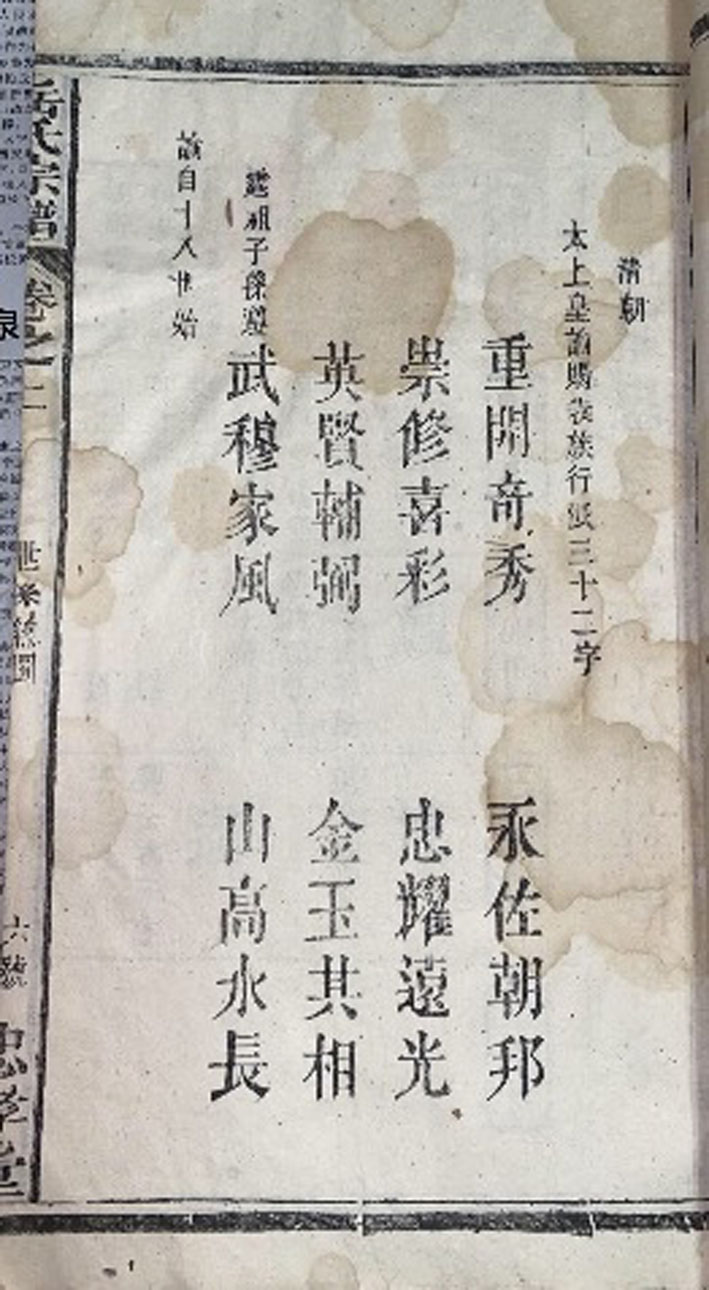 清朝
太上皇諭賜我族行派三十二字
重開奇秀 永佐朝邦
崇修喜彩 忠耀遠光
英賢輔弼 金玉其相
武穆家風 山高水長
諭自十八世始
岳氏宗譜 卷之二 世系總圖 六號 忠孝堂